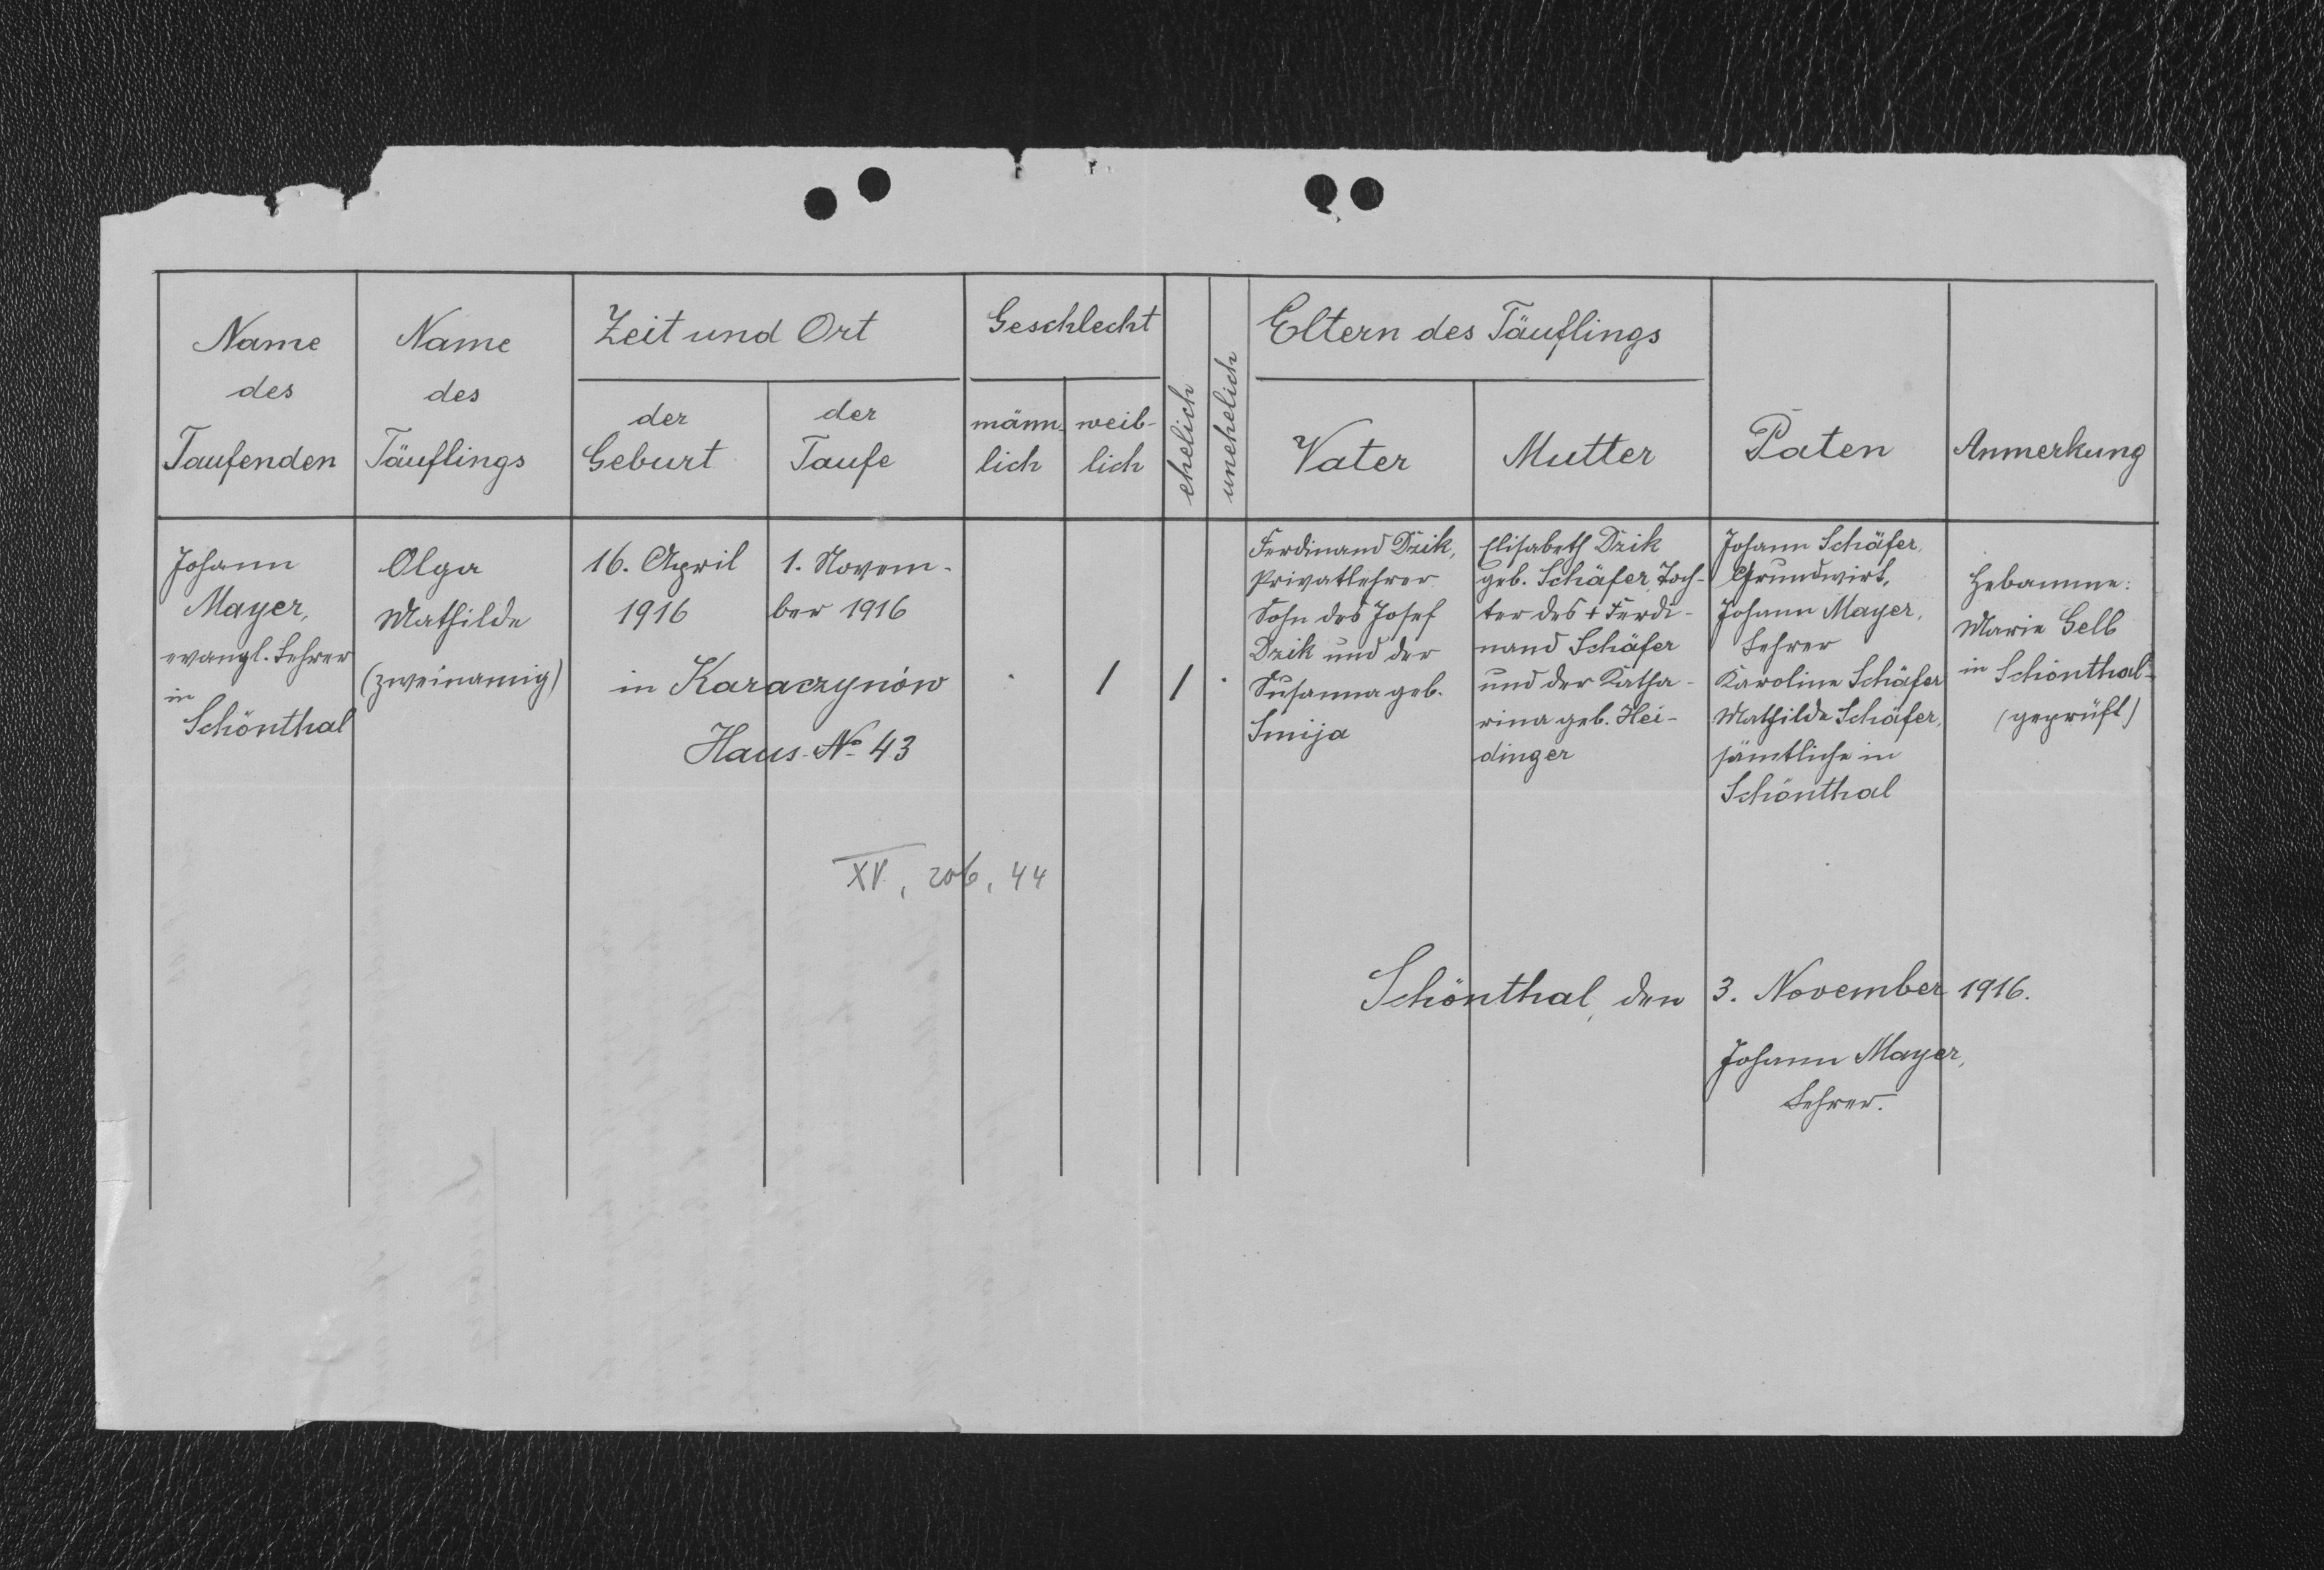 Name
des
Taufenden
Name
des
Täuflings
Zeit und Ort
der
Geburt
der
Taufe
Geschlecht
männ-
lich
weib-
lich
ehelich
unehelich
Eltern des Täuflings
Vater
Mutter
Paten
Anmerkung
Johann
Mayer,
evangl. Lehrer
in
Schönthal
Olga
Mathilde
(zweinamig)
16. April
1916
1. Novem-
ber 1916
in Karaczynów
Haus-No 43
/
/
Ferdinand Dzik,
Privatlehrer
Sohn des Josef
Dzik und der
Susanna geb.
Smija
Elisabeth Dzik
geb. Schäfer, Toch-
ter des + Ferdi-
nand Schäfer
und der Katha-
rina geb. Hei-
dinger
Johann Schäfer,
Grundwirt,
Johann Mayer,
Lehrer
Karoline Schäfer
Mathilde Schäfer,
sämtliche in
Schönthal
Hebamme:
Marie Gelb
in Schönthal-
(geprüft)
XV, 206, 44
Schönthal, den 3. November 1916.
Johann Mayer,
Lehrer.